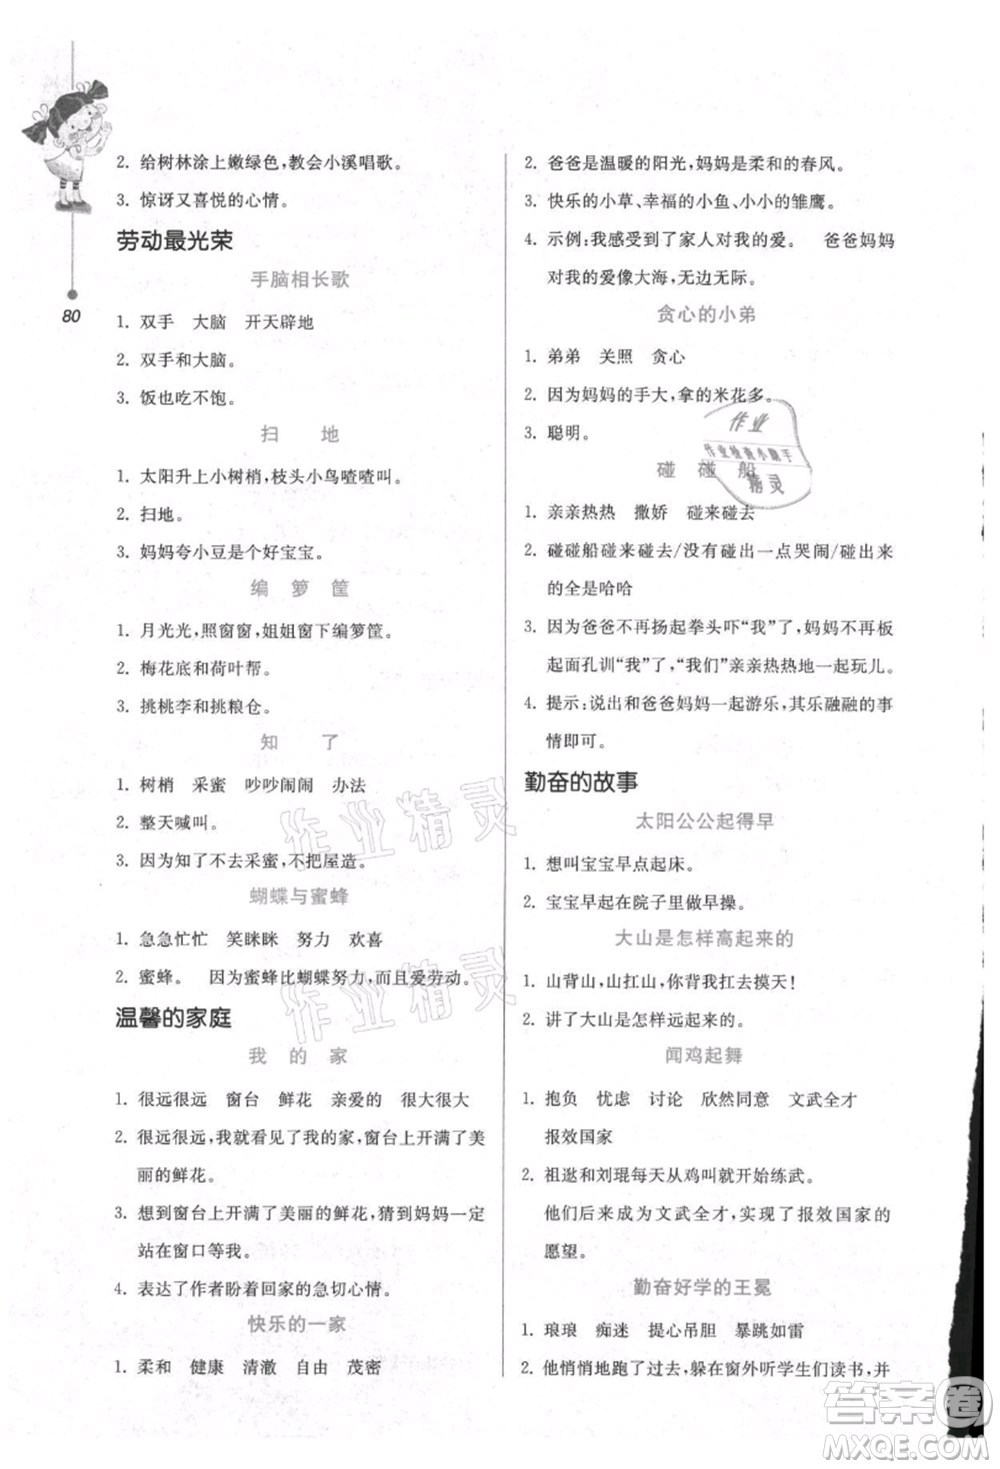 80
2. 给树林涂上嫩绿色,教会小溪唱歌。
3. 惊讶又喜悦的心情。
劳动最光荣
手脑相长歌
1. 双手 大脑 开天辟地
2. 双手和大脑。
3. 饭也吃不饱。
扫 地
1. 太阳升上小树梢,枝头小鸟喳喳叫。
2. 扫地。
3. 妈妈夸小豆是个好宝宝。
编 箩 筐
1. 月光光,照窗窗,姐姐窗下编箩筐。
2. 梅花底和荷叶帮。
3. 挑桃李和挑粮仓。
知 了
1. 树梢 采蜜 吵吵闹闹 办法
2. 整天喊叫。
3. 因为知了不去采蜜,不把屋造。
蝴蝶与蜜蜂
1. 急急忙忙 笑眯眯 努力 欢喜
2. 蜜蜂。 因为蜜蜂比蝴蝶努力,而且爱劳动。
温馨的家庭
我 的 家
1. 很远很远 窗台 鲜花 亲爱的 很大很大
2. 很远很远,我就看见了我的家,窗台上开满了美
丽的鲜花。
3. 想到窗台上开满了美丽的鲜花,猜到妈妈一定
站在窗口等我。
4. 表达了作者盼着回家的急切心情。
快乐的一家
1. 柔和 健康 清澈 自由 茂密
2. 爸爸是温暖的阳光,妈妈是柔和的春风。
3. 快乐的小草、幸福的小鱼、小小的雏鹰。
4. 示例:我感受到了家人对我的爱。 爸爸妈妈
对我的爱像大海,无边无际。
贪心的小弟
1. 弟弟 关照 贪心
2. 因为妈妈的手大,拿的米花多。
3. 聪明。
碰 碰 船
1. 亲亲热热 撒娇 碰来碰去
2. 碰碰船碰来碰去/没有碰出一点哭闹/碰出来
的全是哈哈
3. 因为爸爸不再扬起拳头吓“我”了,妈妈不再板
起面孔训“我”了,“我们”亲亲热热地一起玩儿。
4. 提示:说出和爸爸妈妈一起游乐,其乐融融的事
情即可。
勤奋的故事
太阳公公起得早
1. 想叫宝宝早点起床。
2. 宝宝早起在院子里做早操。
大山是怎样高起来的
1. 山背山,山扛山,你背我去摸天!
2. 讲了大山是怎样远起来的。
闻鸡起舞
1. 抱负 忧虑 讨论 欣然同意 文武全才
报效国家
2. 祖逖和刘琨每天从鸡叫就开始练武。
他们后来成为文武全才,实现了报效国家的
愿望。
勤奋好学的王冕
1. 琅琅 痴迷 提心吊胆 暴跳如雷
2. 他悄悄地跑了过去,躲在窗外听学生们读书,并
作业
作业检查小助手
精灵
作业精灵
作业精灵
答案卷
MXQE.COM